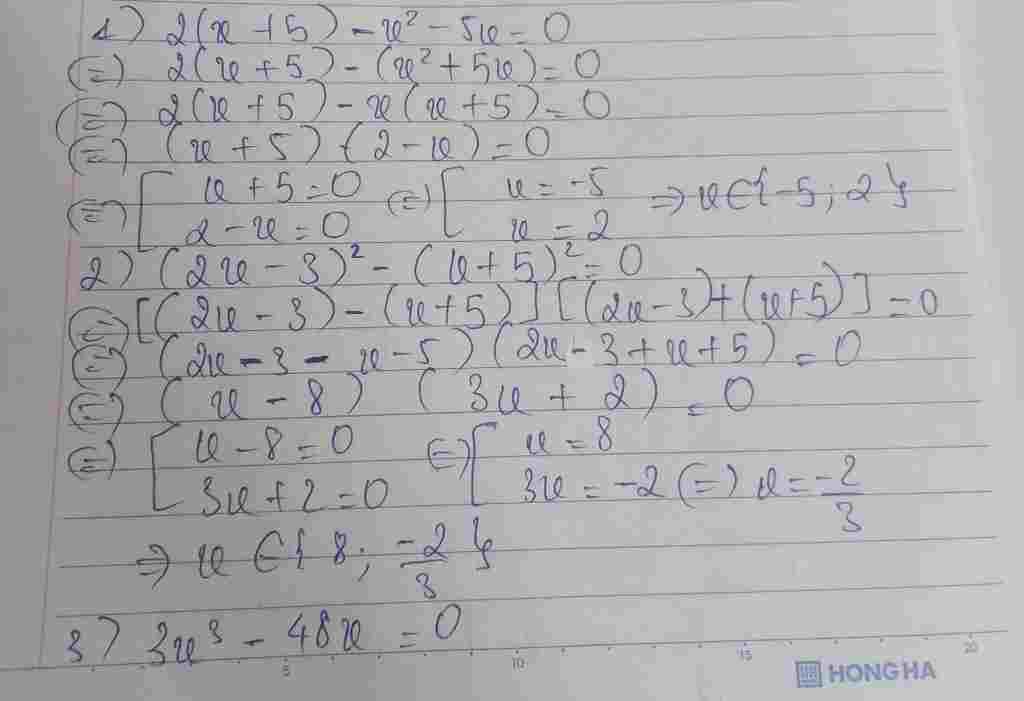 1) 2(x + 5) - x² - 5x = 0
(=) 2(x + 5) - (x² + 5x) = 0
(=) 2(x + 5) - x(x + 5) = 0
(=) (x + 5) (2 - x) = 0
(=) [ x + 5 = 0 (=) [ x = -5 => x ∈ { -5 ; 2 }
2 - x = 0 x = 2
2) (2x - 3)² - (x + 5)² = 0
(=) [(2x - 3) - (x + 5)] [(2x - 3) + (x + 5)] = 0
(=) (2x - 3 - x - 5) (2x - 3 + x + 5) = 0
(=) (x - 8) (3x + 2) = 0
(=) [ x - 8 = 0 (=) [ x = 8
3x + 2 = 0 3x = -2 (=) x = -2/3
=> x ∈ { 8 ; -2/3 }
3) 3x³ - 48x = 0
5 10 15 20
HONG HA